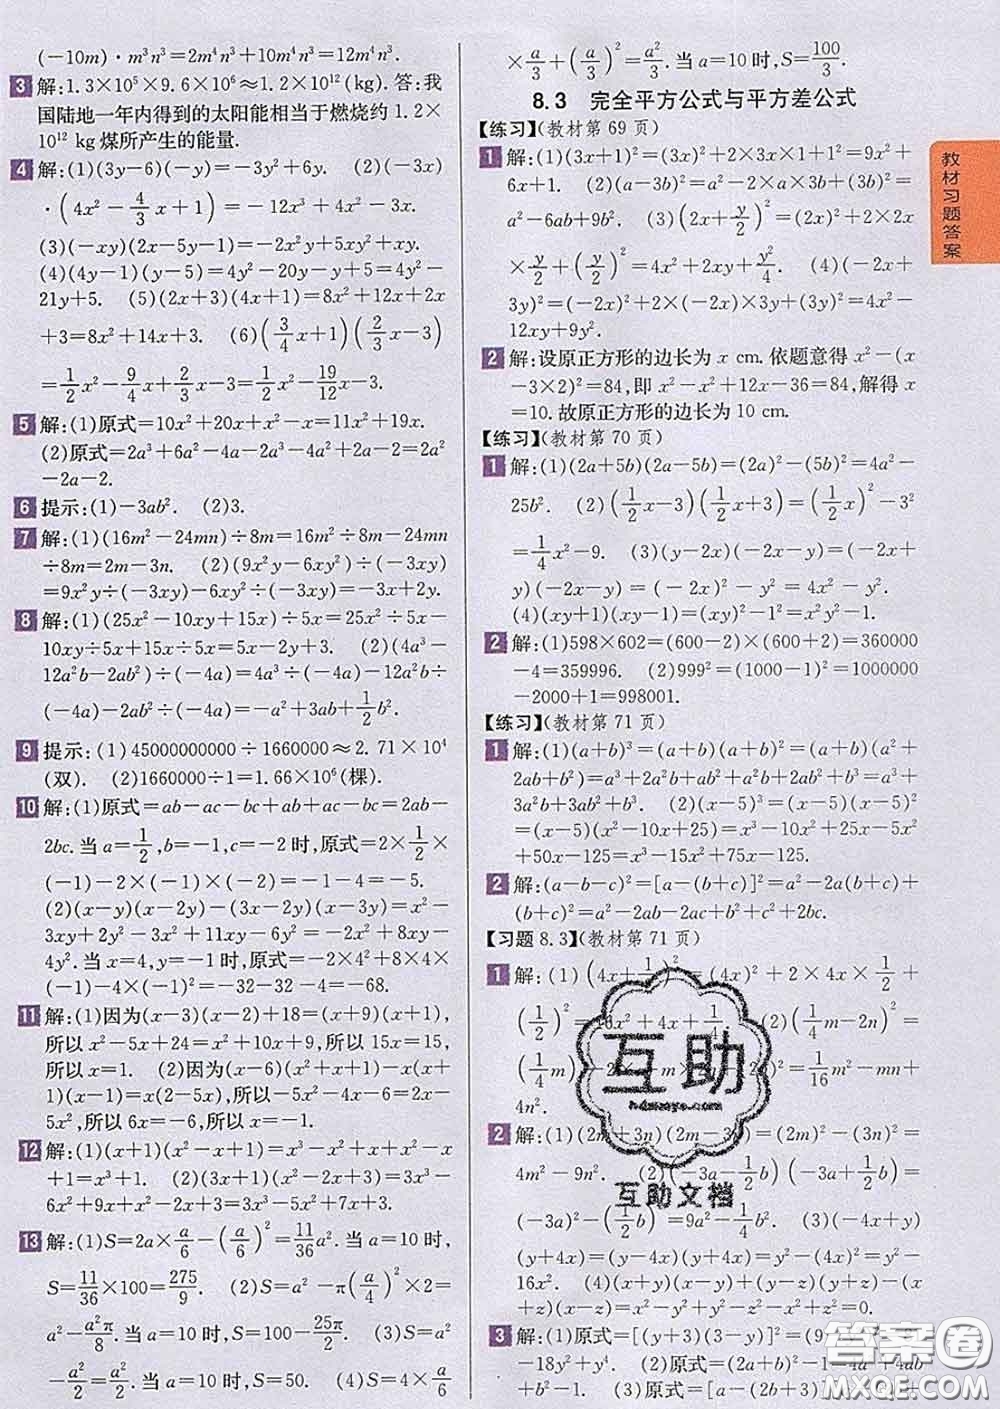 (-10m)·m³n³=2m⁴n³+10m⁴n³=12m⁴n³.
3 解:1.3×10⁵×9.6×10⁶≈1.2×10¹²(kg). 答:我
国陆地一年内得到的太阳能相当于燃烧约 1.2×
10¹² kg 煤所产生的能量.
4 解:(1)(3y-6)(-y)=-3y²+6y. (2)(-3x)
·(4x²-4/3x+1)=-12x³+4x²-3x.
(3)(-xy)(2x-5y-1)=-2x²y+5xy²+xy.
(4)(4y-1)(y-5)=4y²-20y-y+5=4y²-
21y+5. (5)(2x+3)(4x+1)=8x²+12x+2x
+3=8x²+14x+3. (6)(3/4x+1)(2/3x-3)
=1/2x²-9/4x+2/3x-3=1/2x²-19/12x-3.
5 解:(1)原式=10x²+20x+x²-x=11x²+19x.
(2)原式=2a³+6a²-4a-2a³-4a²+2a=2a²
-2a-2.
6 提示:(1)-3ab². (2)3.
7 解:(1)(16m²-24mn)÷8m=16m²÷8m-24mn
÷8m=2m-3n. (2)(9x²y-6xy²)÷(-3xy)
=9x²y÷(-3xy)-6xy²÷(-3xy)=-3x+2y.
8 解:(1)(25x²-10xy+15x)÷5x=25x²÷5x-
10xy÷5x+15x÷5x=5x-2y+3. (2)(4a³-
12a²b-2ab²)÷(-4a)=4a³÷(-4a)-12a²b÷
(-4a)-2ab²÷(-4a)=-a²+3ab+1/2b².
9 提示:(1)45000000000÷1660000≈2.71×10⁴
(双). (2)1660000÷1=1.66×10⁶(棵).
10 解:(1)原式=ab-ac-bc+ab+ac-bc=2ab-
2bc. 当 a=1/2,b=-1,c=-2 时,原式=2×1/2×
(-1)-2×(-1)×(-2)=-1-4=-5.
(2)(x-y)(x-2y)-(3x-2y)(x-3y)=x²-
3xy+2y²-3x²+11xy-6y²=-2x²+8xy-
4y². 当 x=4,y=-1 时,原式=-2×4²+8×4×
(-1)-4×(-1)²=-32-32-4=-68.
11 解:(1)因为(x-3)(x-2)+18=(x+9)(x+1),
所以 x²-5x+24=x²+10x+9,所以 15x=15,
所以 x=1. (2)因为(x-6)(x²+x+1)=
x(x²-5x)+5x,所以-5x²-5x-6=-5x²+
5x,所以 6x=-6,所以 x=-1.
12 解:(1)(x+1)(x²-x+1)=x³-x²+x+x²-x
+1=x³+1. (2)(x+3)(3x²-5x+3)=3x³-
6x²+9x²+3x-5x+3=3x³-5x²+7x+3.
13 解:(1)S=2a×a/6-(a/6)²=11/36a². 当 a=10 时,
S=11/36×100=275/9. (2)S=a²-π(a/4)²×2=
a²-a²π/8. 当 a=10 时,S=100-25π/2. (3)S=a²
-a²/2=a²/2. 当 a=10 时,S=50. (4)S=4×a/6
×a/3+(a/3)²=a²/3. 当 a=10 时,S=100/3.
8.3 完全平方公式与平方差公式
【练习】(教材第 69 页)
1 解:(1)(3x+1)²=(3x)²+2×3x×1+1²=9x²+
6x+1. (2)(a-3b)²=a²-2×a×3b+(3b)²=
a²-6ab+9b². (3)(2x+y/2)²=(2x)²+2×2x
×y/2+(y/2)²=4x²+2xy+y²/4. (4)(-2x+
3y)²=(-2x)²+2×(-2x)×3y+(3y)²=4x²-
12xy+9y².
2 解:设原正方形的边长为 x cm. 依题意得 x²-(x
-3×2)²=84,即 x²-x²+12x-36=84,解得 x
=10. 故原正方形的边长为 10 cm.
【练习】(教材第 70 页)
1 解:(1)(2a+5b)(2a-5b)=(2a)²-(5b)²=4a²-
25b². (2)(1/2x-3)(1/2x+3)=(1/2x)²-3²
=1/4x²-9. (3)(y-2x)(-2x-y)=(-2x+
y)(-2x-y)=(-2x)²-y²=4x²-y².
(4)(xy+1)(xy-1)=(xy)²-1²=x²y²-1.
2 解:(1)598×602=(600-2)×(600+2)=360000
-4=359996. (2)999²=(1000-1)²=1000000
-2000+1=998001.
【练习】(教材第 71 页)
1 解:(1)(a+b)³=(a+b)(a+b)²=(a+b)(a²+
2ab+b²)=a³+2a²b+ab²+a²b+2ab²+b³=a³+
3a²b+3ab²+b³. (2)(x-5)³=(x-5)(x-5)²
=(x-5)(x²-10x+25)=x³-10x²+25x-5x²
+50x-125=x³-15x²+75x-125.
2 解:(a-b-c)²=[a-(b+c)]²=a²-2a(b+c)+
(b+c)²=a²-2ab-2ac+b²+2bc+c².
【习题 8.3】(教材第 71 页)
1 解:(1)(4x+1/2)²=(4x)²+2×4x×1/2+
(1/2)²=16x²+4x+1/4. (2)(1/4m-2n)²=
(1/4m)²=1/16m²-mn+
4n².
2 解:(1)(2m+3n)(2m-3n)=(2m)²-(3n)²=
4m²-9n². (2)(-3a-1/2b)(-3a+1/2b)=
(-3a)²-(1/2b)²=9a²-1/4b². (3)(-4x+y)
(y+4x)=(y-4x)(y+4x)=y²-(4x)²=y²-
16x². (4)(x+y)(x-y)+(y+z)(y-z)+(x
+z)(z-x)=x²-y²+y²-z²+z²-x²=0.
3 解:(1)原式=[(y+3)(3-y)]²=(9
-18y²+y⁴. (2)原式=
b²-1. (3)原式=[a-(2b+3)][a
教材习题答案
互助
互助文档
答案圈
MXQE.COM